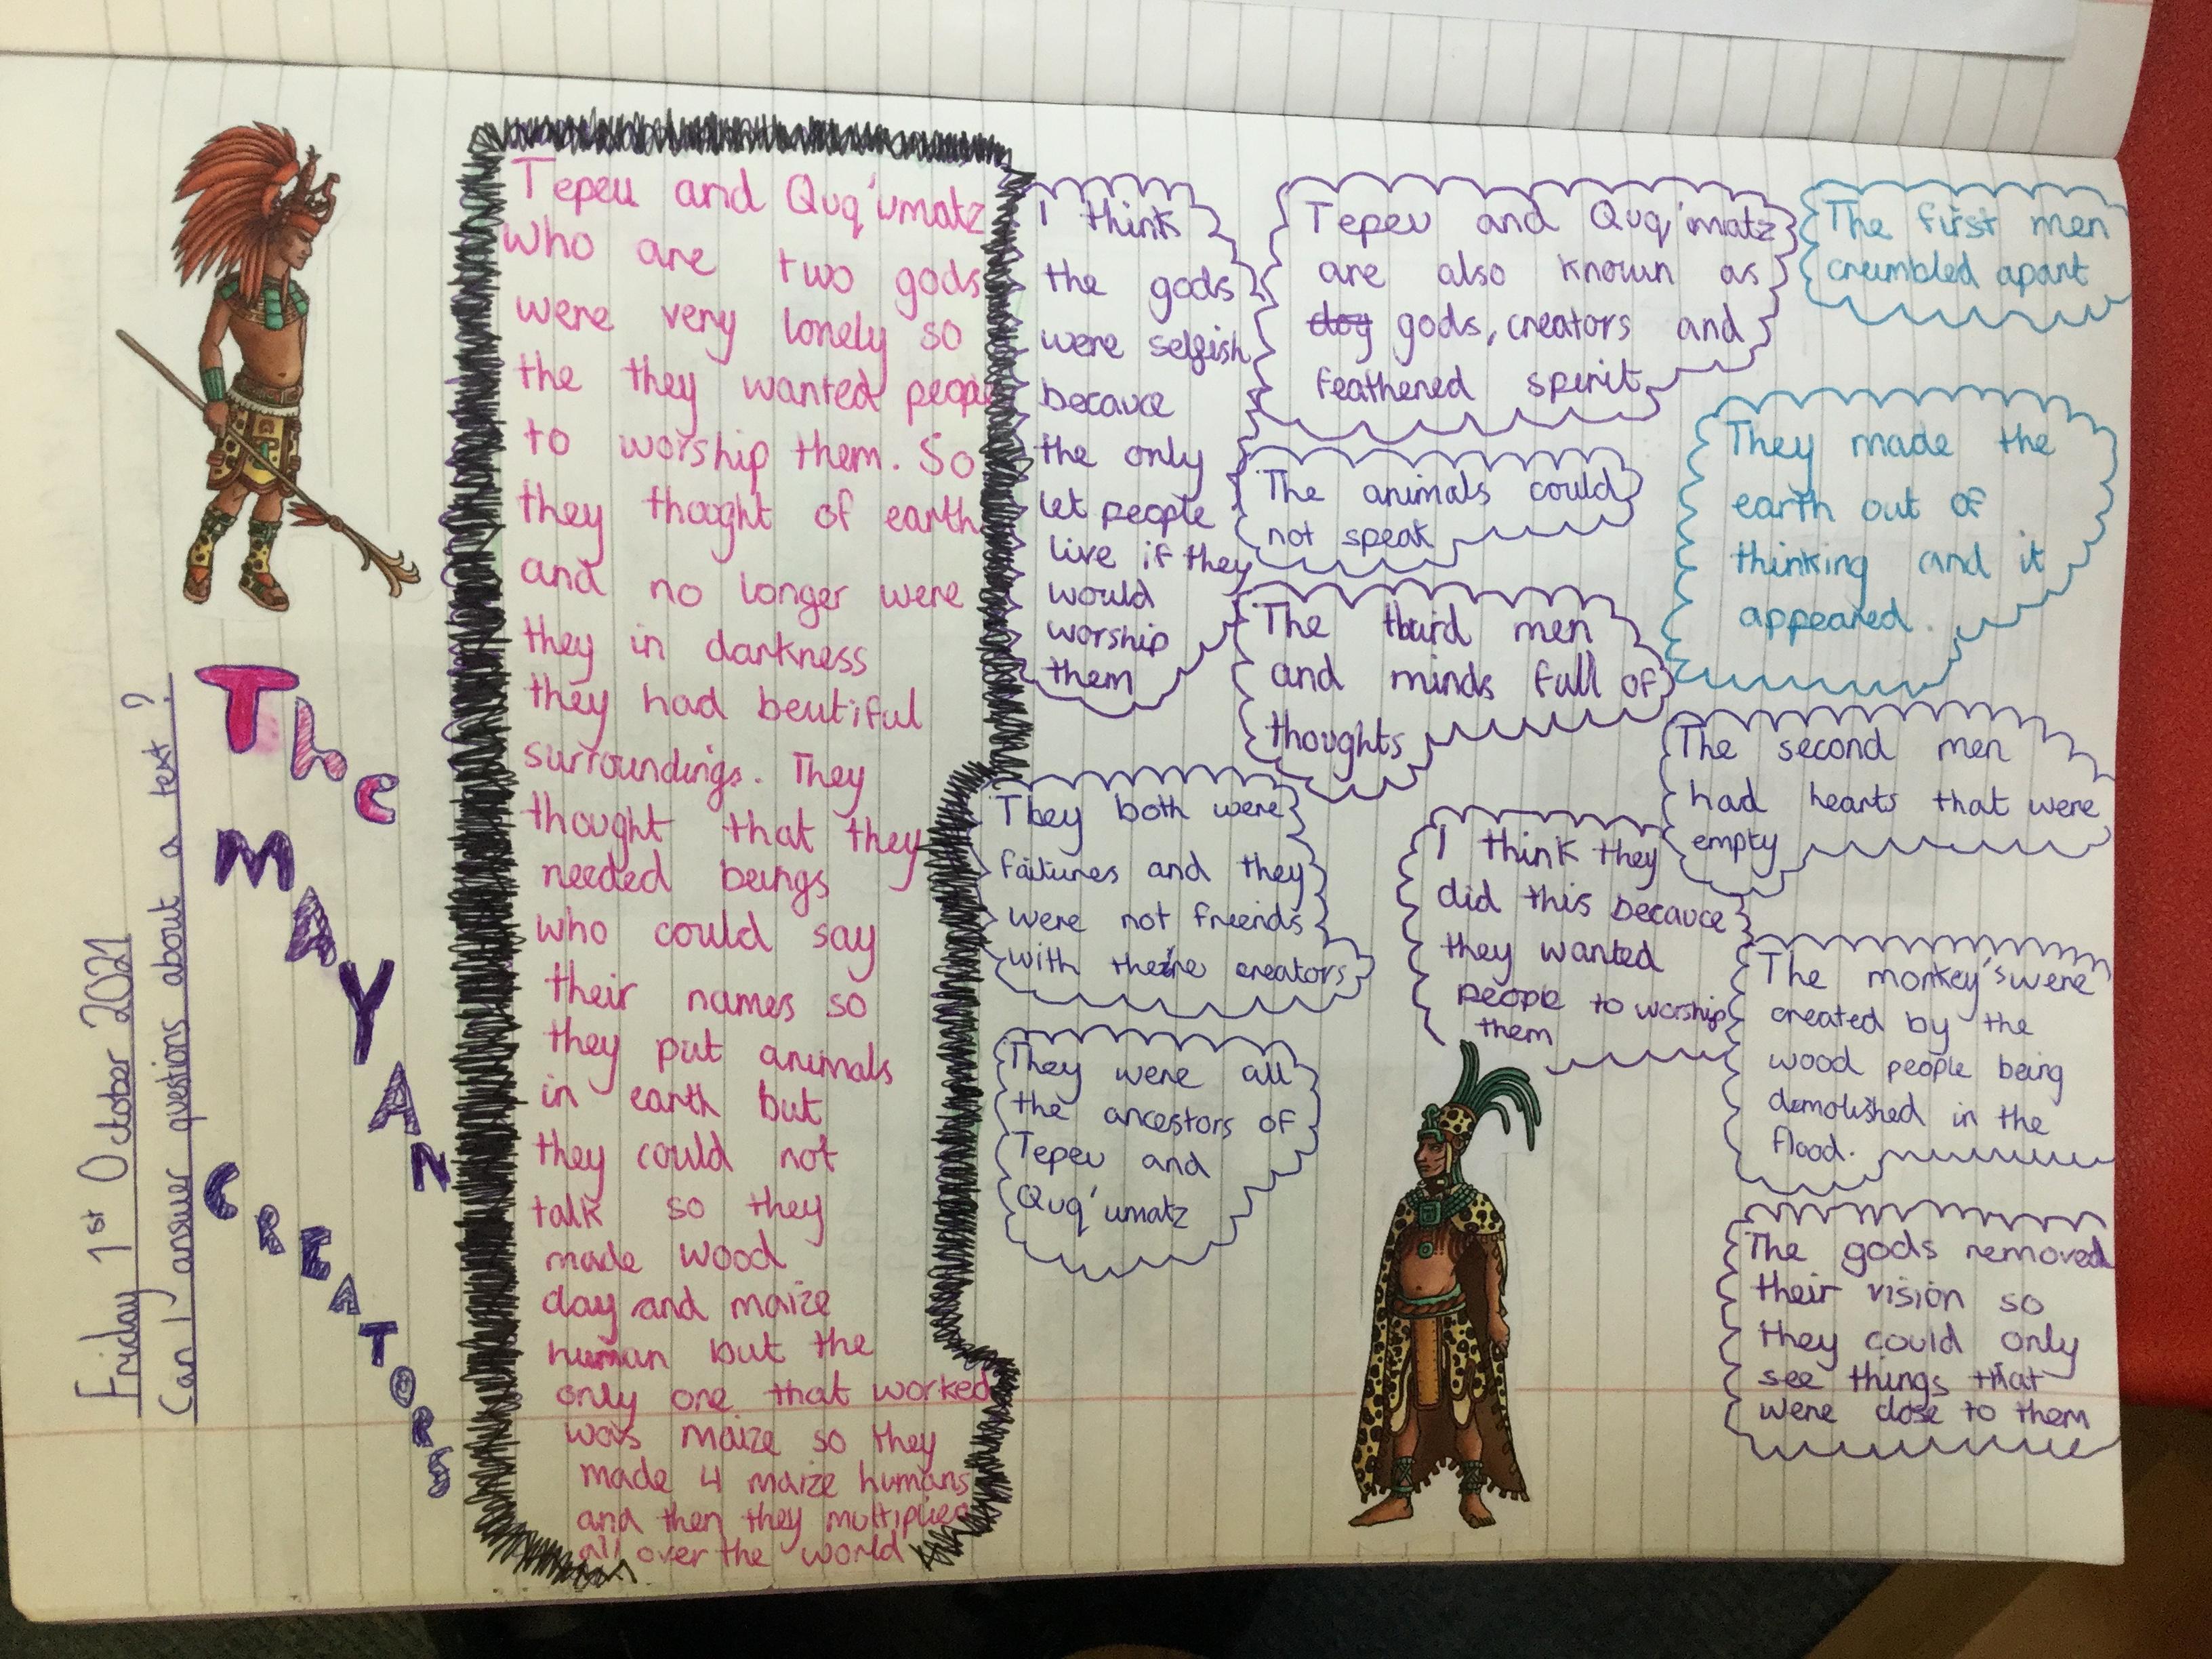 Friday 1st October 2021
Can I answer questions about a text?
The
MAYAN
CREATORS
Tepeu and Quq'umatz
who are two gods
were very lonely so
the they wanted people
to worship them. So
they thought of earth
and no longer were
they in darkness
they had beutiful
surroundings. They
thought that they
needed beings
who could say
their names so
they put animals
in earth but
they could not
talk so they
made wood
clay and maize
human but the
only one that worked
was maize so they
made 4 maize humans
and then they multiplied
all over the world
I think
the gods
were selfish
becauce
the only
let people
live if they
would
worship
them
Tepeu and Quq'matz
are also known as
dog gods, creators and
feathened spirit
The first men
crumbled apart
The animals could
not speak
They made the
earth out of
thinking and it
appeared.
The third men
and minds full of
thoughts
The second men
had hearts that were
empty
They both were
failures and they
were not freinds
with their creators
I think they
did this becauce
they wanted
people to worship
them
The monkey's were
created by the
wood people being
demolished in the
flood.
They were all
the ancestors of
Tepeu and
Quq'umatz
The gods removed
their vision so
they could only
see things that
were close to them